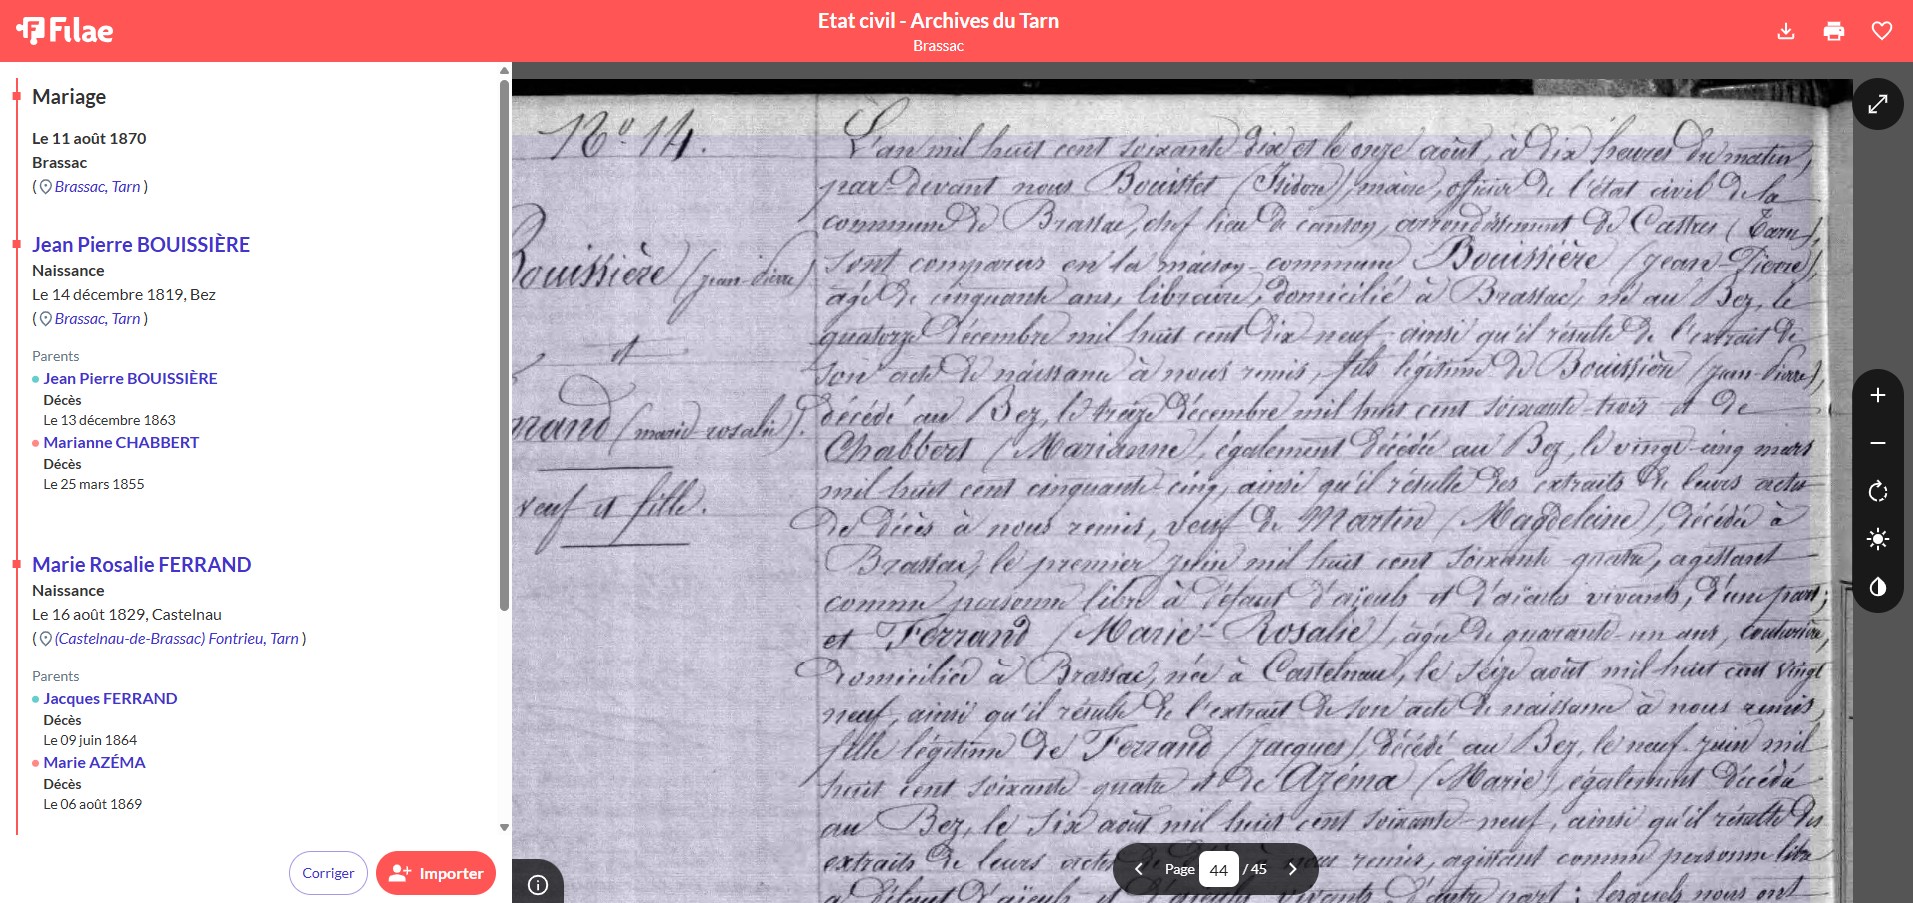 Filae
Etat civil - Archives du Tarn
Brassac
Mariage
Le 11 août 1870
Brassac
( Brassac, Tarn )
Jean Pierre BOUISSIÈRE
Naissance
Le 14 décembre 1819, Bez
( Brassac, Tarn )
Parents
Jean Pierre BOUISSIÈRE
Décès
Le 13 décembre 1863
Marianne CHABBERT
Décès
Le 25 mars 1855
Marie Rosalie FERRAND
Naissance
Le 16 août 1829, Castelnau
( (Castelnau-de-Brassac) Fontrieu, Tarn )
Parents
Jacques FERRAND
Décès
Le 09 juin 1864
Marie AZÉMA
Décès
Le 06 août 1869
Corriger
Importer
N° 14.
Bouissière (jean-pierre)
et
rrand (marie-rosalie).
veuf et fille.
L'an mil huit cent soixante dix et le onze août, à dix heures du matin,
par-devant nous Bouisset (Isidore), maire, officier de l'état civil de la
commune de Brassac, chef lieu de canton, arrondissement de Castres (Tarn),
sont comparus en la maison-commune Bouissière (jean-Pierre),
âgé de cinquante ans, libraire, domicilié à Brassac, né au Bez, le
quatorze décembre mil huit cent dix neuf ainsi qu'il résulte de l'extrait de
son acte de naissance à nous remis, fils légitime de Bouissière (jean-pierre),
décédé au Bez, le treize décembre mil huit cent soixante-trois et de
Chabbert (Marianne), également décédée au Bez, le vingt-cinq mars
mil huit cent cinquante-cinq, ainsi qu'il résulte des extraits de leurs actes
de décès à nous remis, veuf de Martin (Magdelaine), décédée à
Brassac, le premier juin mil huit cent soixante-quatre, agissant
comme personne libre à défaut d'aïeuls et d'aïeules vivants, d'une part;
et Ferrand (Marie-Rosalie), âgée de quarante-un ans, couturière,
domiciliée à Brassac, née à Castelnau, le seize août mil huit cent vingt
neuf, ainsi qu'il résulte de l'extrait de son acte de naissance à nous remis,
fille légitime de Ferrand (jacques), décédé au Bez, le neuf juin mil
huit cent soixante-quatre et de Azéma (Marie), également décédée
au Bez, le six août mil huit cent soixante-neuf, ainsi qu'il résulte des
extraits de leurs actes de nous remis, agissant comme personne libre
à défaut d'aïeuls et d'aïeules vivants d'autre part; lesquels nous ont
Page 44 / 45